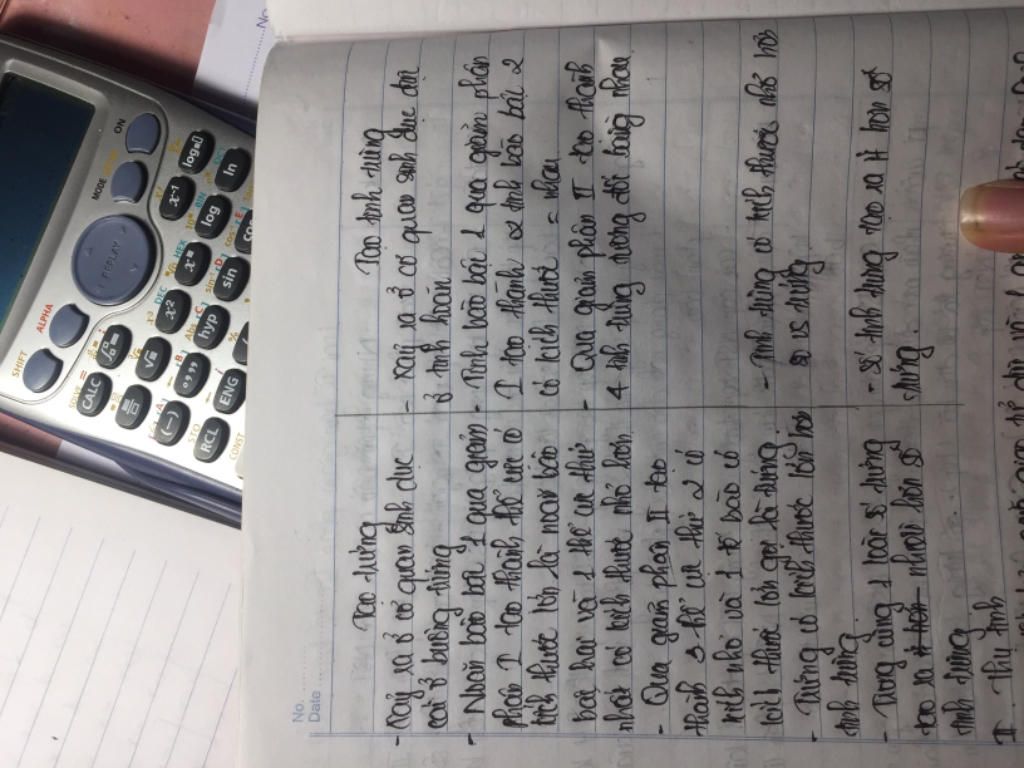 No.
Date
Tạo trứng
- Xảy ra ở cơ quan sinh dục
cái ở buồng trứng
- Noãn bào bậc 1 qua giảm
phân I tạo thành thể cực có
kích thước lớn là noãn bào
bậc hai và 1 thể cực thứ
nhất có kích thước nhỏ hơn
- Qua giảm phân II tạo
thành 3 thể cực thứ 2 có
kích nhỏ và 1 tế bào có
kích thước lớn gọi là trứng
- Trứng có kích thước lớn hơn
tinh trùng
- Trong cùng 1 loài số trứng
tạo ra ít hơn nhiều hơn số
tinh trùng
II. Thụ tinh
Tạo tinh trùng
- Xảy ra ở cơ quan sinh dục đực
ở tinh hoàn
- Tinh bào bậc 1 qua giảm phân
I tạo thành 2 tinh bào bậc 2
có kích thước = nhau
- Qua giảm phân II tạo thành
4 tinh trùng tương đối bằng nhau
- Tinh trùng có kích thước nhỏ hơn
so vs trứng
- Số tinh trùng tạo ra ít hơn số
trứng
SHIFT
ALPHA
MODE
ON
REPLAY
CALC
x²
x⁻¹
log
ln
(-)
hyp
sin
RCL
ENG
STO
DEC
HEX
BIN
CONST